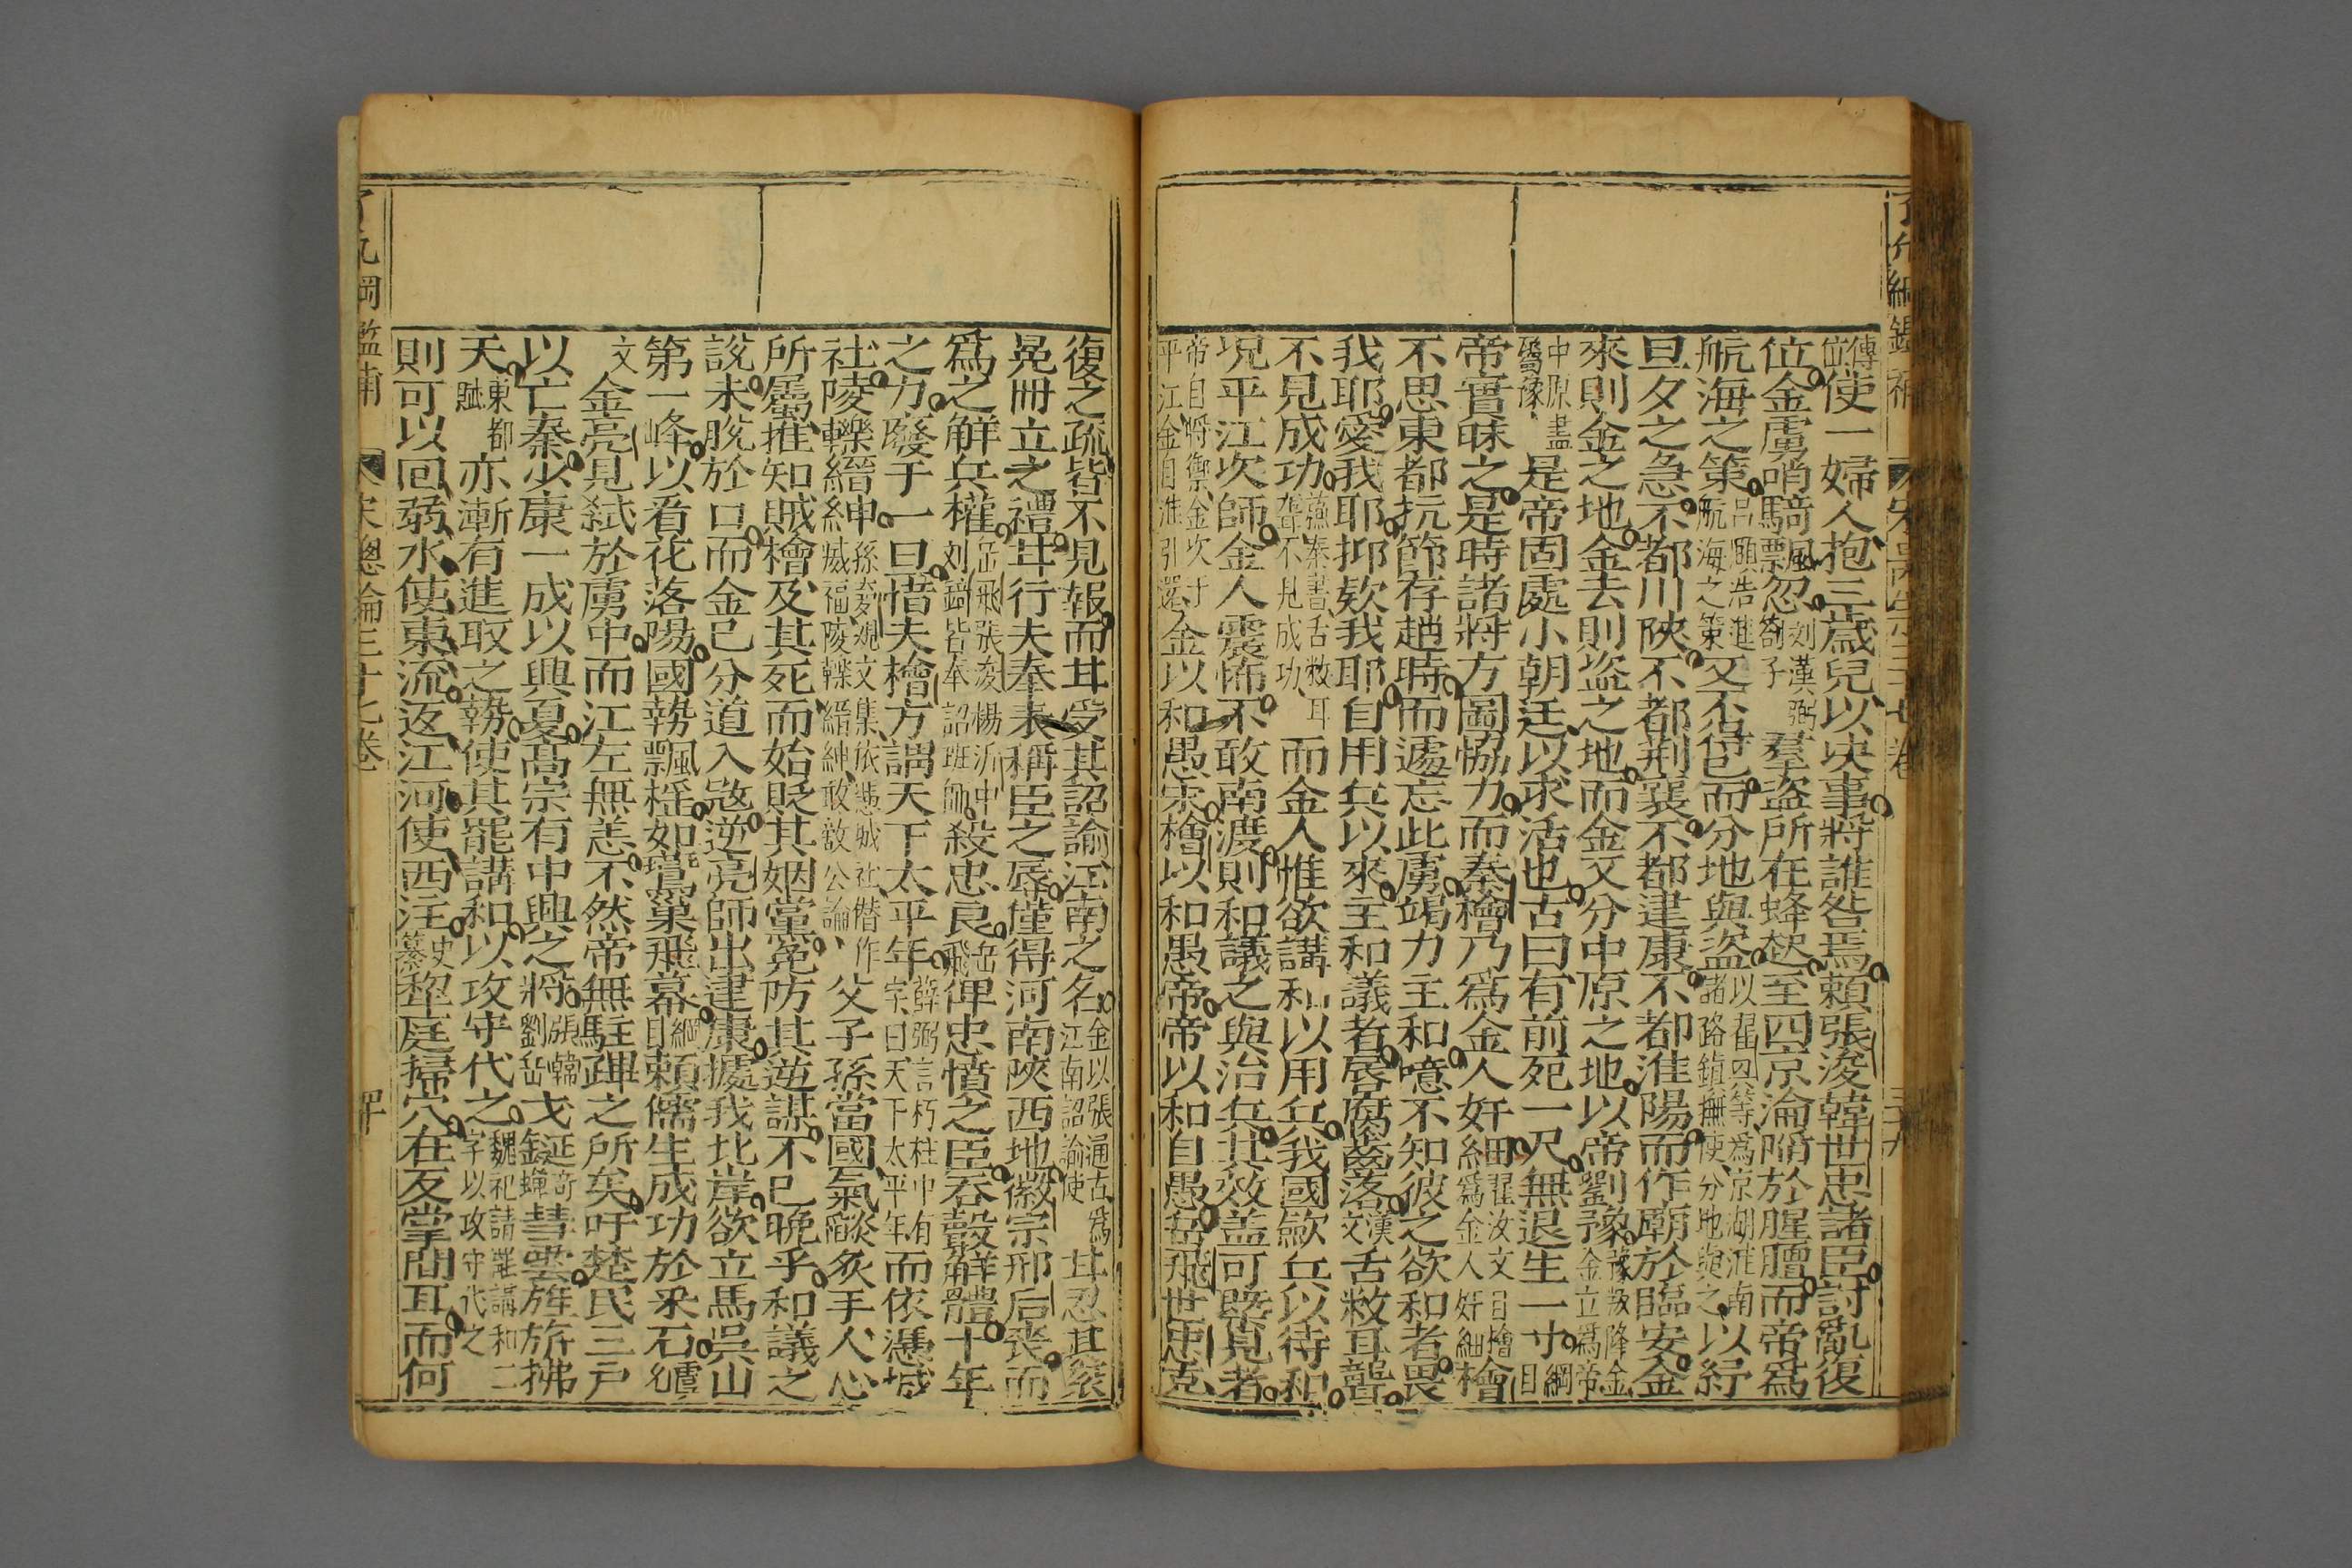 傳位使一婦人抱三歲兒以决事將誰咎焉賴張浚韓世忠諸臣討亂復
位金虜哨騎飄忽劉漢弼劄子羣盜所在蜂起至四京淪陷於腥膻而帝爲
航海之策吕頤浩進航海之策又不得已而分地與盜以翟興等爲京湖淮南諸路鎮撫使分地與之以紓
旦夕之急不都川陝不都荆襄不都建康不都淮陽而作廟於臨安金
來則金之地金去則盜之地而金又分中原之地以帝劉豫豫叛降金金立爲帝
中原盡屬豫是帝固處小朝廷以求活也古曰有前死一尺無退生一寸綱目
帝實昧之是時諸將方圖恊力而秦檜乃爲金人奸細翟汝文目檜爲金人奸細檜
不思東都抗節存趙時而遽忘此虜竭力主和噫不知彼之欲和者畏
我耶愛我耶抑欺我耶自用兵以來主和議者唇腐齒落漢文舌敝耳聾
不見成功蘓秦書舌敝耳聾不見成功而金人惟欲講和以用兵我國歛兵以待和
况平江次師金人震怖不敢南渡則和議之與治兵其效盖可槩見者
帝自將禦金次于平江金自淮引還金以和愚宋檜以和愚帝帝以和自愚岳飛世忠克
復之疏皆不見報而甘受其詔諭江南之名金以張通古爲江南詔諭使甘忍其衮
冕冊立之禮甘行夫奉表稱臣之辱僅得河南陝西地徽宗邢后喪而
爲之解兵權岳飛張浚楊沂中刘錡皆奉詔班師殺忠良岳飛俾忠憤之臣吞聲解體十年
之力廢于一日惜夫檜方謂天下太平年薛弼言朽柱中有字曰天下太平年而依憑城
社陵轢縉紳孫覿文集依憑城社僣作威福陵轢縉紳敢敚公論父子孫當國氣燄炙手人心
所屬推知賊檜及其死而始貶其姻黨冤防其逆謀不已晚乎和議之
說未脱於口而金已分道入㓂逆亮師出建康據我北岸欲立馬吳山
第一峰以看花落陽國勢飄摇如瓘窠飛幕綱目賴儒生成功於釆石虞允
文金亮見弑於虜中而江左無恙不然帝無駐蹕之所矣吁楚民三戶
以亡秦少康一成以興夏高宗有中興之將張韓劉岳戈鋋彗雲旌旂拂
天東都賦亦漸有進取之勢使其罷講和以攻守代之魏祀請罷講和二字以攻守代之
則可以回弱水使東流返江河使西注史纂犂庭掃穴在反掌間耳而何